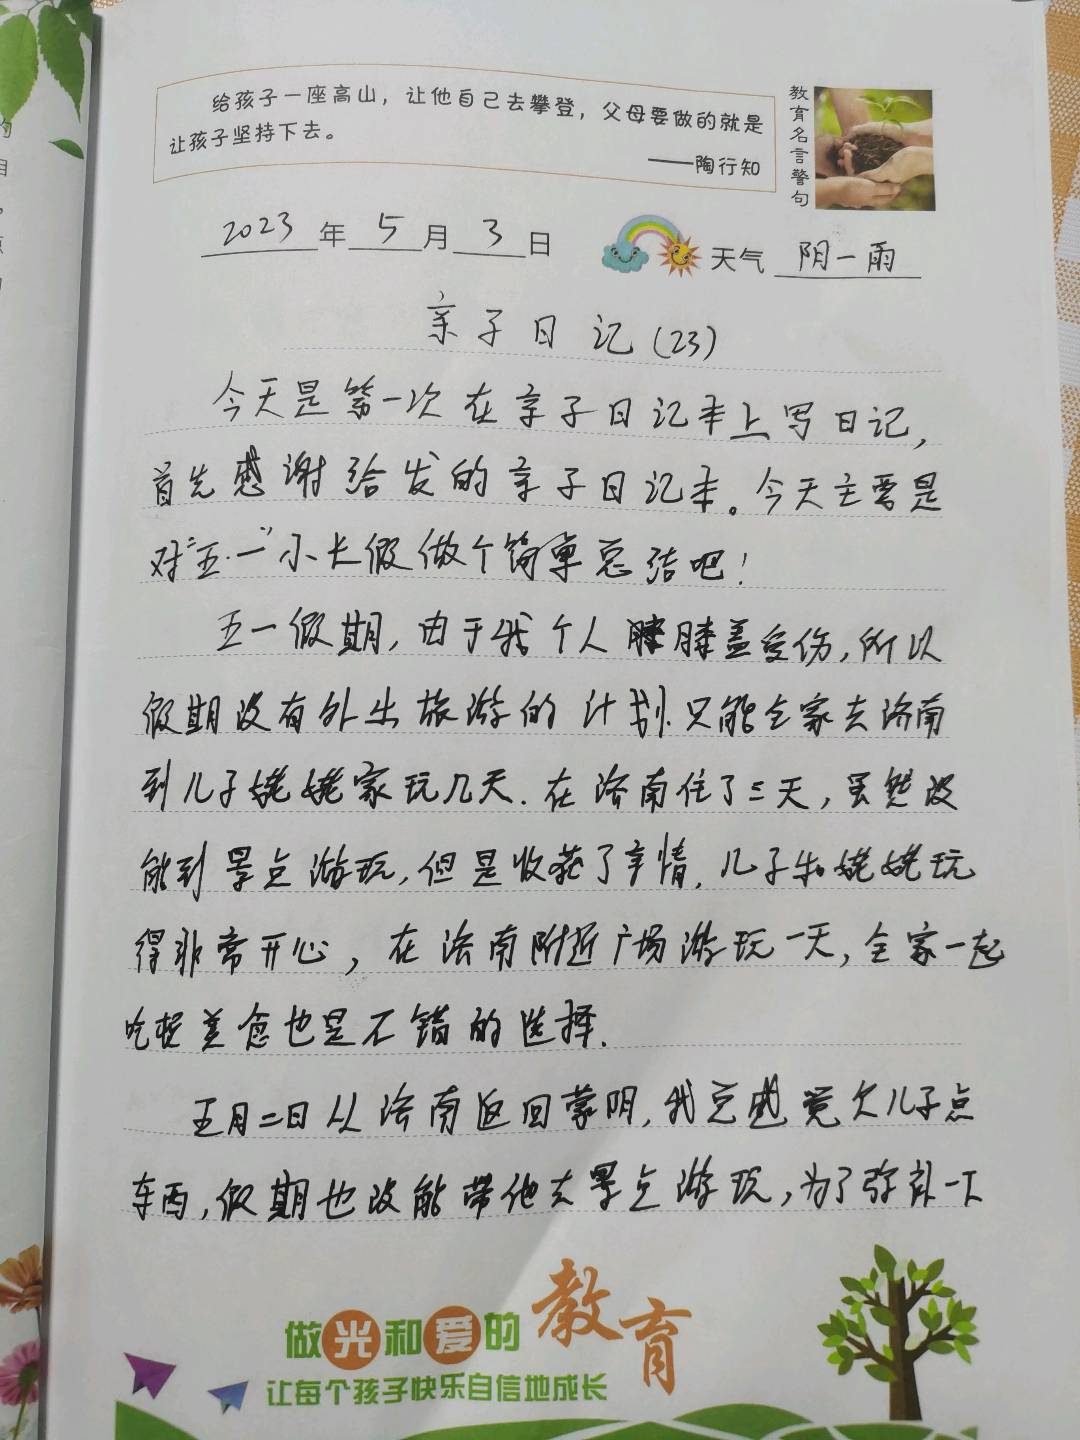 给孩子一座高山，让他自己去攀登，父母要做的就是
让孩子坚持下去。
——陶行知
教育名言警句
2023年5月3日
天气 阴一雨
亲子日记(23)
今天是第一次在亲子日记本上写日记，
首先感谢给发的亲子日记本。今天主要是
对“五·一”小长假做个简单总结吧！
五一假期，由于我个人膝盖受伤，所以
假期没有外出旅游的计划.只能全家去济南
到儿子姥姥家玩几天.在济南住了三天，虽然没
能到景点游玩，但是收获了亲情，儿子和姥姥玩
得非常开心，在济南附近广场游玩一天，全家一起
吃捉美食也是不错的选择.
五月二日从济南返回蒙阴，我总感觉欠儿子点
东西，假期也没能带他去景点游玩，为了弥补一下
做光和爱的教育
让每个孩子快乐自信地成长